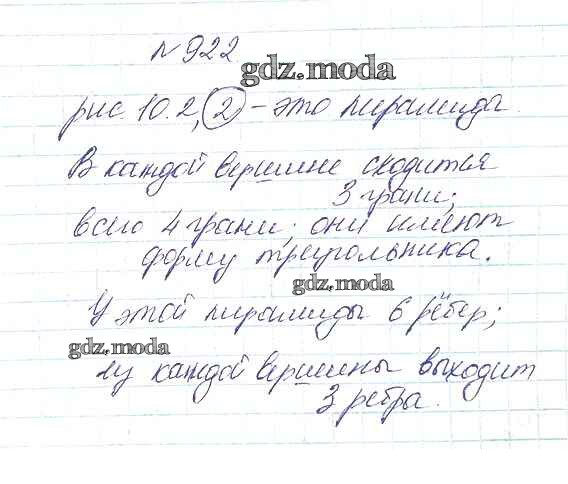 № 922
gdz.moda
рис. 10.2, 2 - это пирамиды.
В каждой вершине сходится
3 грани;
всего 4 грани; они имеют
форму треугольника.
gdz.moda
У этой пирамиды 6 рёбер;
gdz.moda
из каждой вершины выходит
3 ребра.